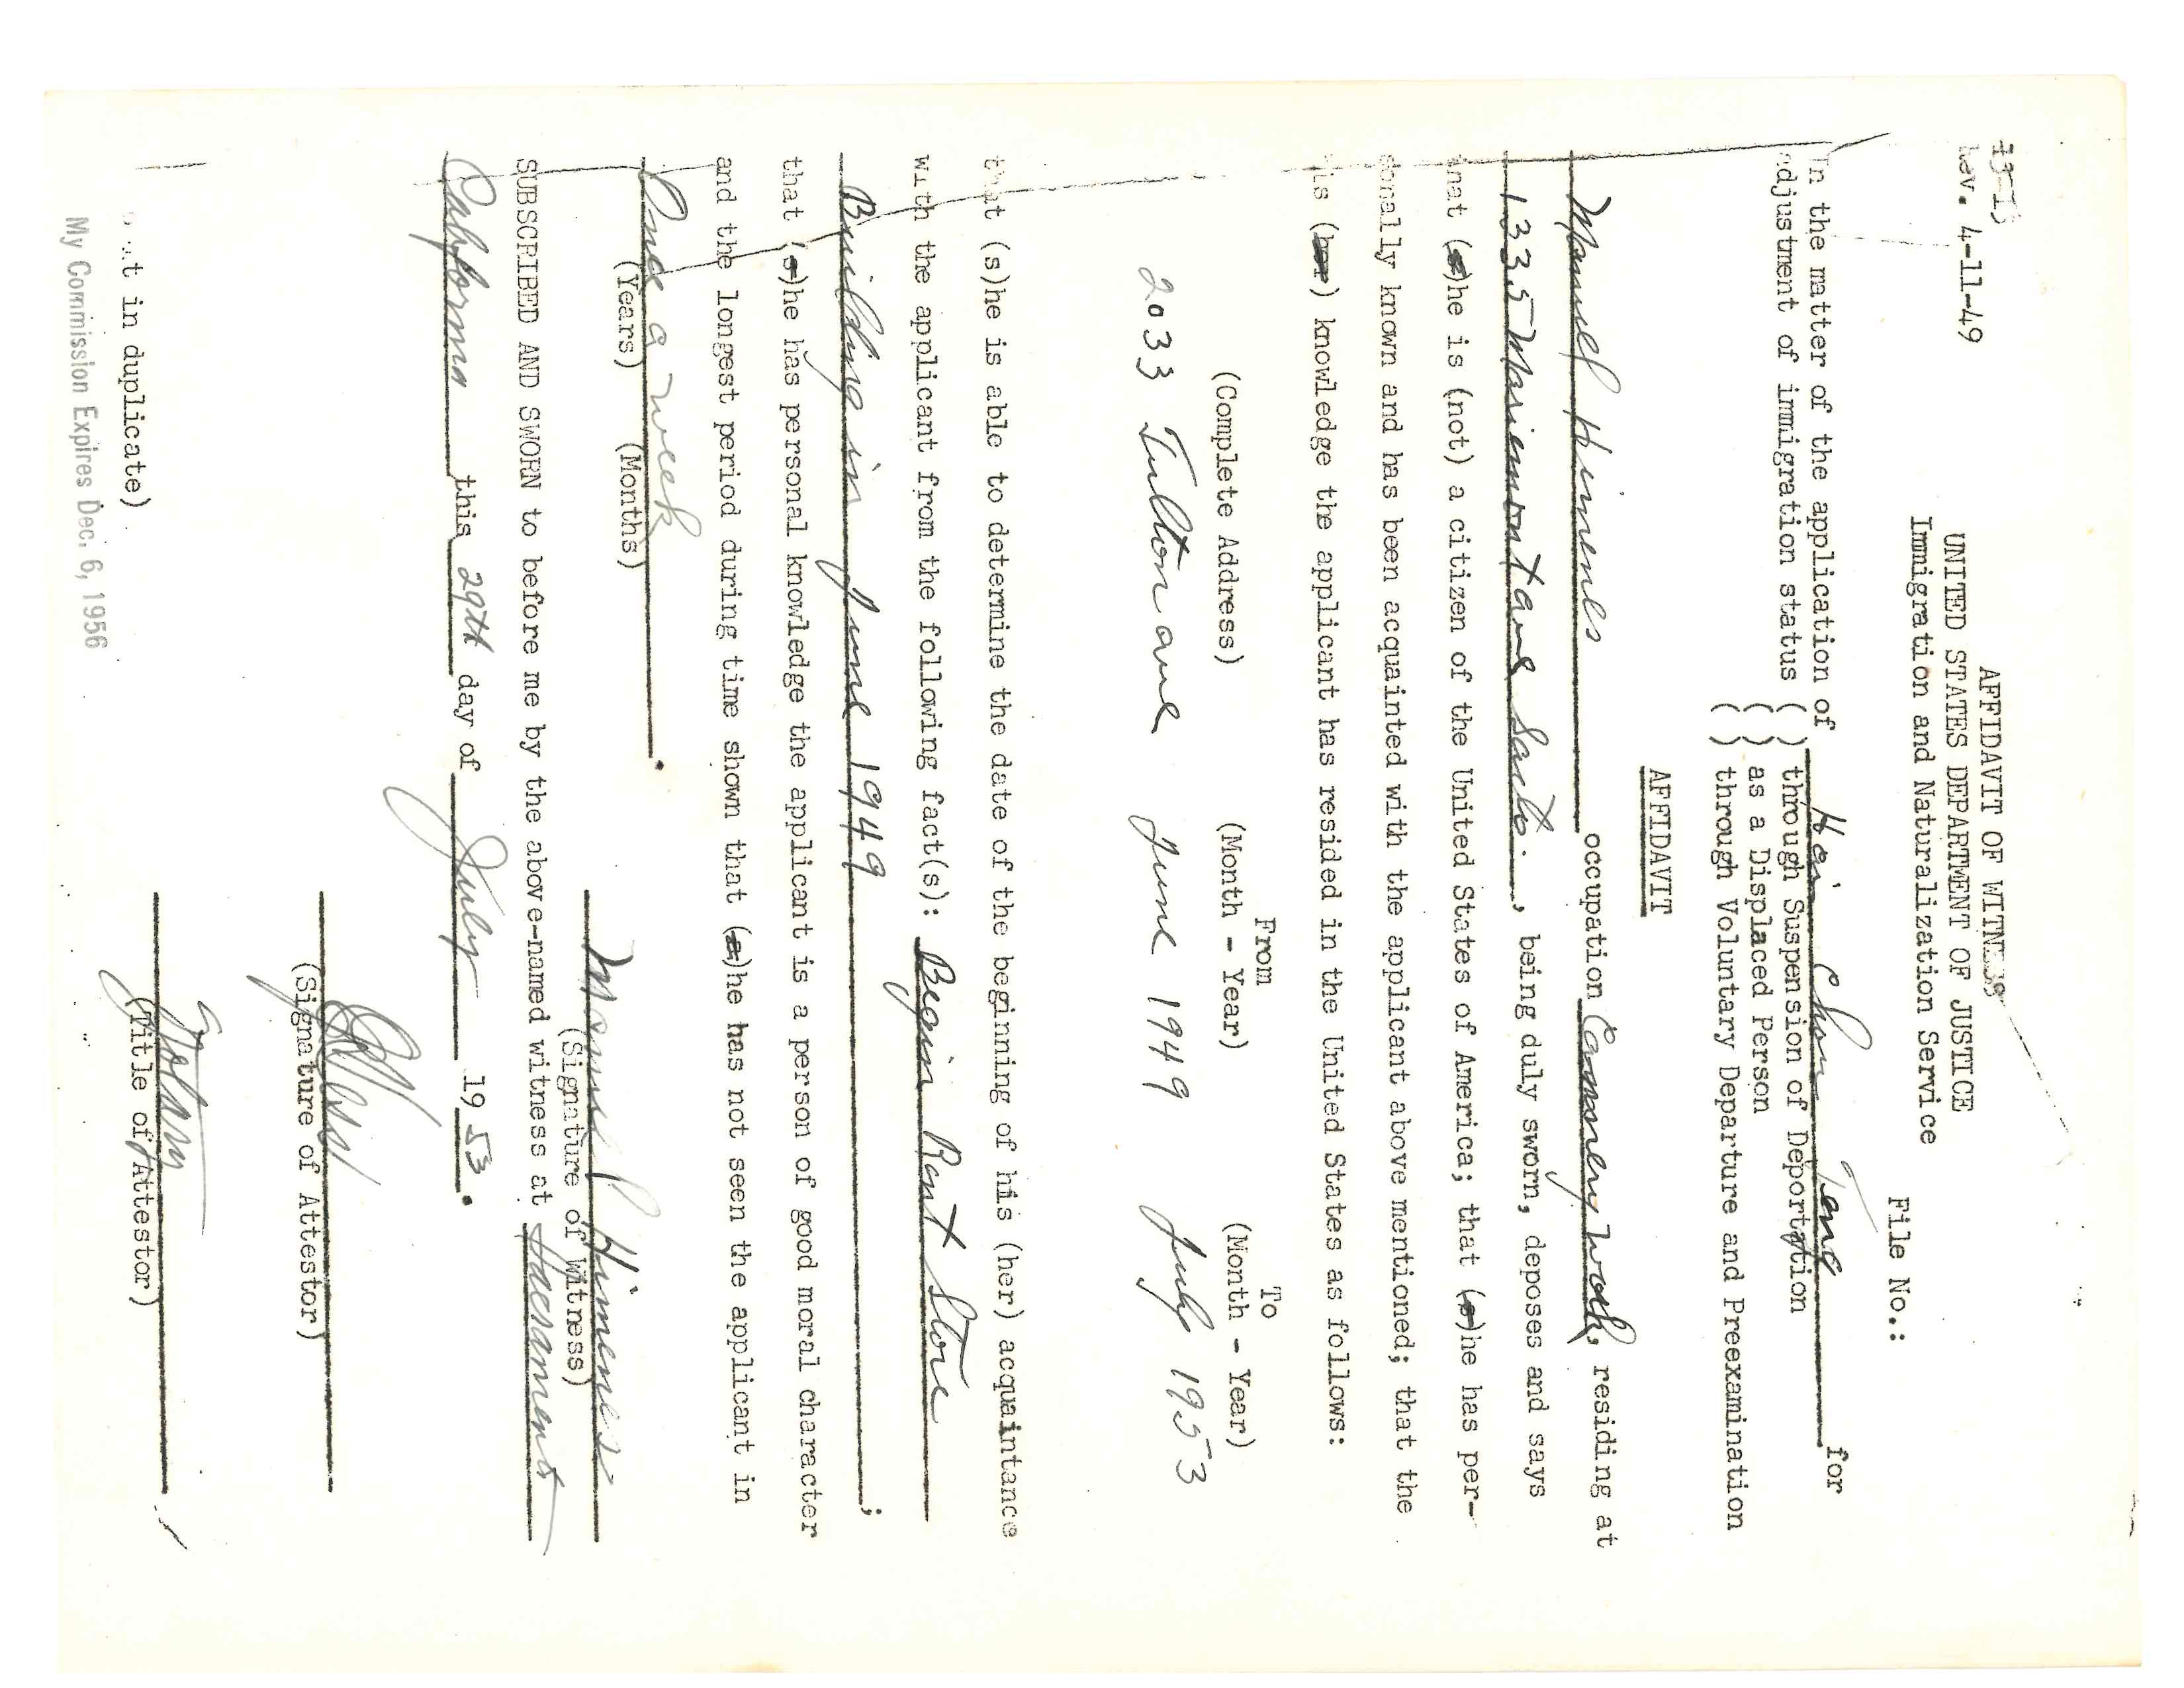 Rev. 4-11-49
AFFIDAVIT OF WITNESS
UNITED STATES DEPARTMENT OF JUSTICE
Immigration and Naturalization Service
File No.:
In the matter of the application of Hai Chou Teng for
adjustment of immigration status ( ) through Suspension of Deportation
( ) as a Displaced Person
( ) through Voluntary Departure and Preexamination
AFFIDAVIT
Manuel Himenes occupation Cannery work, residing at
1335 Mariemont ave Sacto. , being duly sworn, deposes and says
that (s)he is (not) a citizen of the United States of America; that (s)he has per-
sonally known and has been acquainted with the applicant above mentioned; that the
his (her) knowledge the applicant has resided in the United States as follows:
From To
(Complete Address) (Month - Year) (Month - Year)
2033 Fulton ave June 1949 July 1953
that (s)he is able to determine the date of the beginning of his (her) acquaintance
with the applicant from the following fact(s): Begin Rent Store
Building in June 1949 ;
that (s)he has personal knowledge the applicant is a person of good moral character
and the longest period during time shown that (s)he has not seen the applicant in
Once a week .
(Years) (Months)
Manuel P Himenes
(Signature of Witness)
SUBSCRIBED AND SWORN to before me by the above-named witness at Sacramento
California this 29th day of July 19 53.
Hess
(Signature of Attestor)
Notary
(Title of Attestor)
t in duplicate)
My Commission Expires Dec. 6, 1956